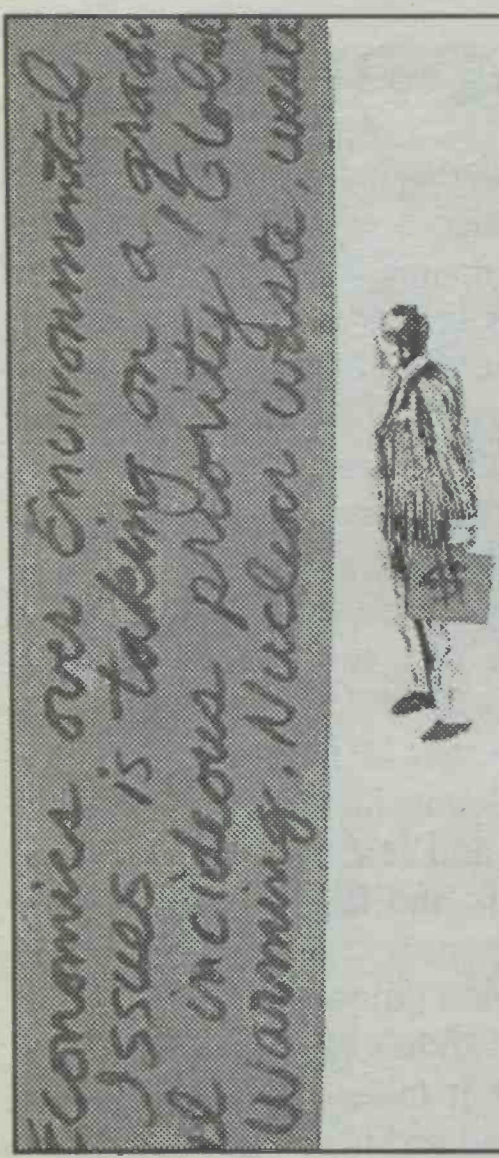 Economics over Environmental
Issues is taking on a gradu
al incideous priority. Global
Warming, Nuclear waste, waste
$